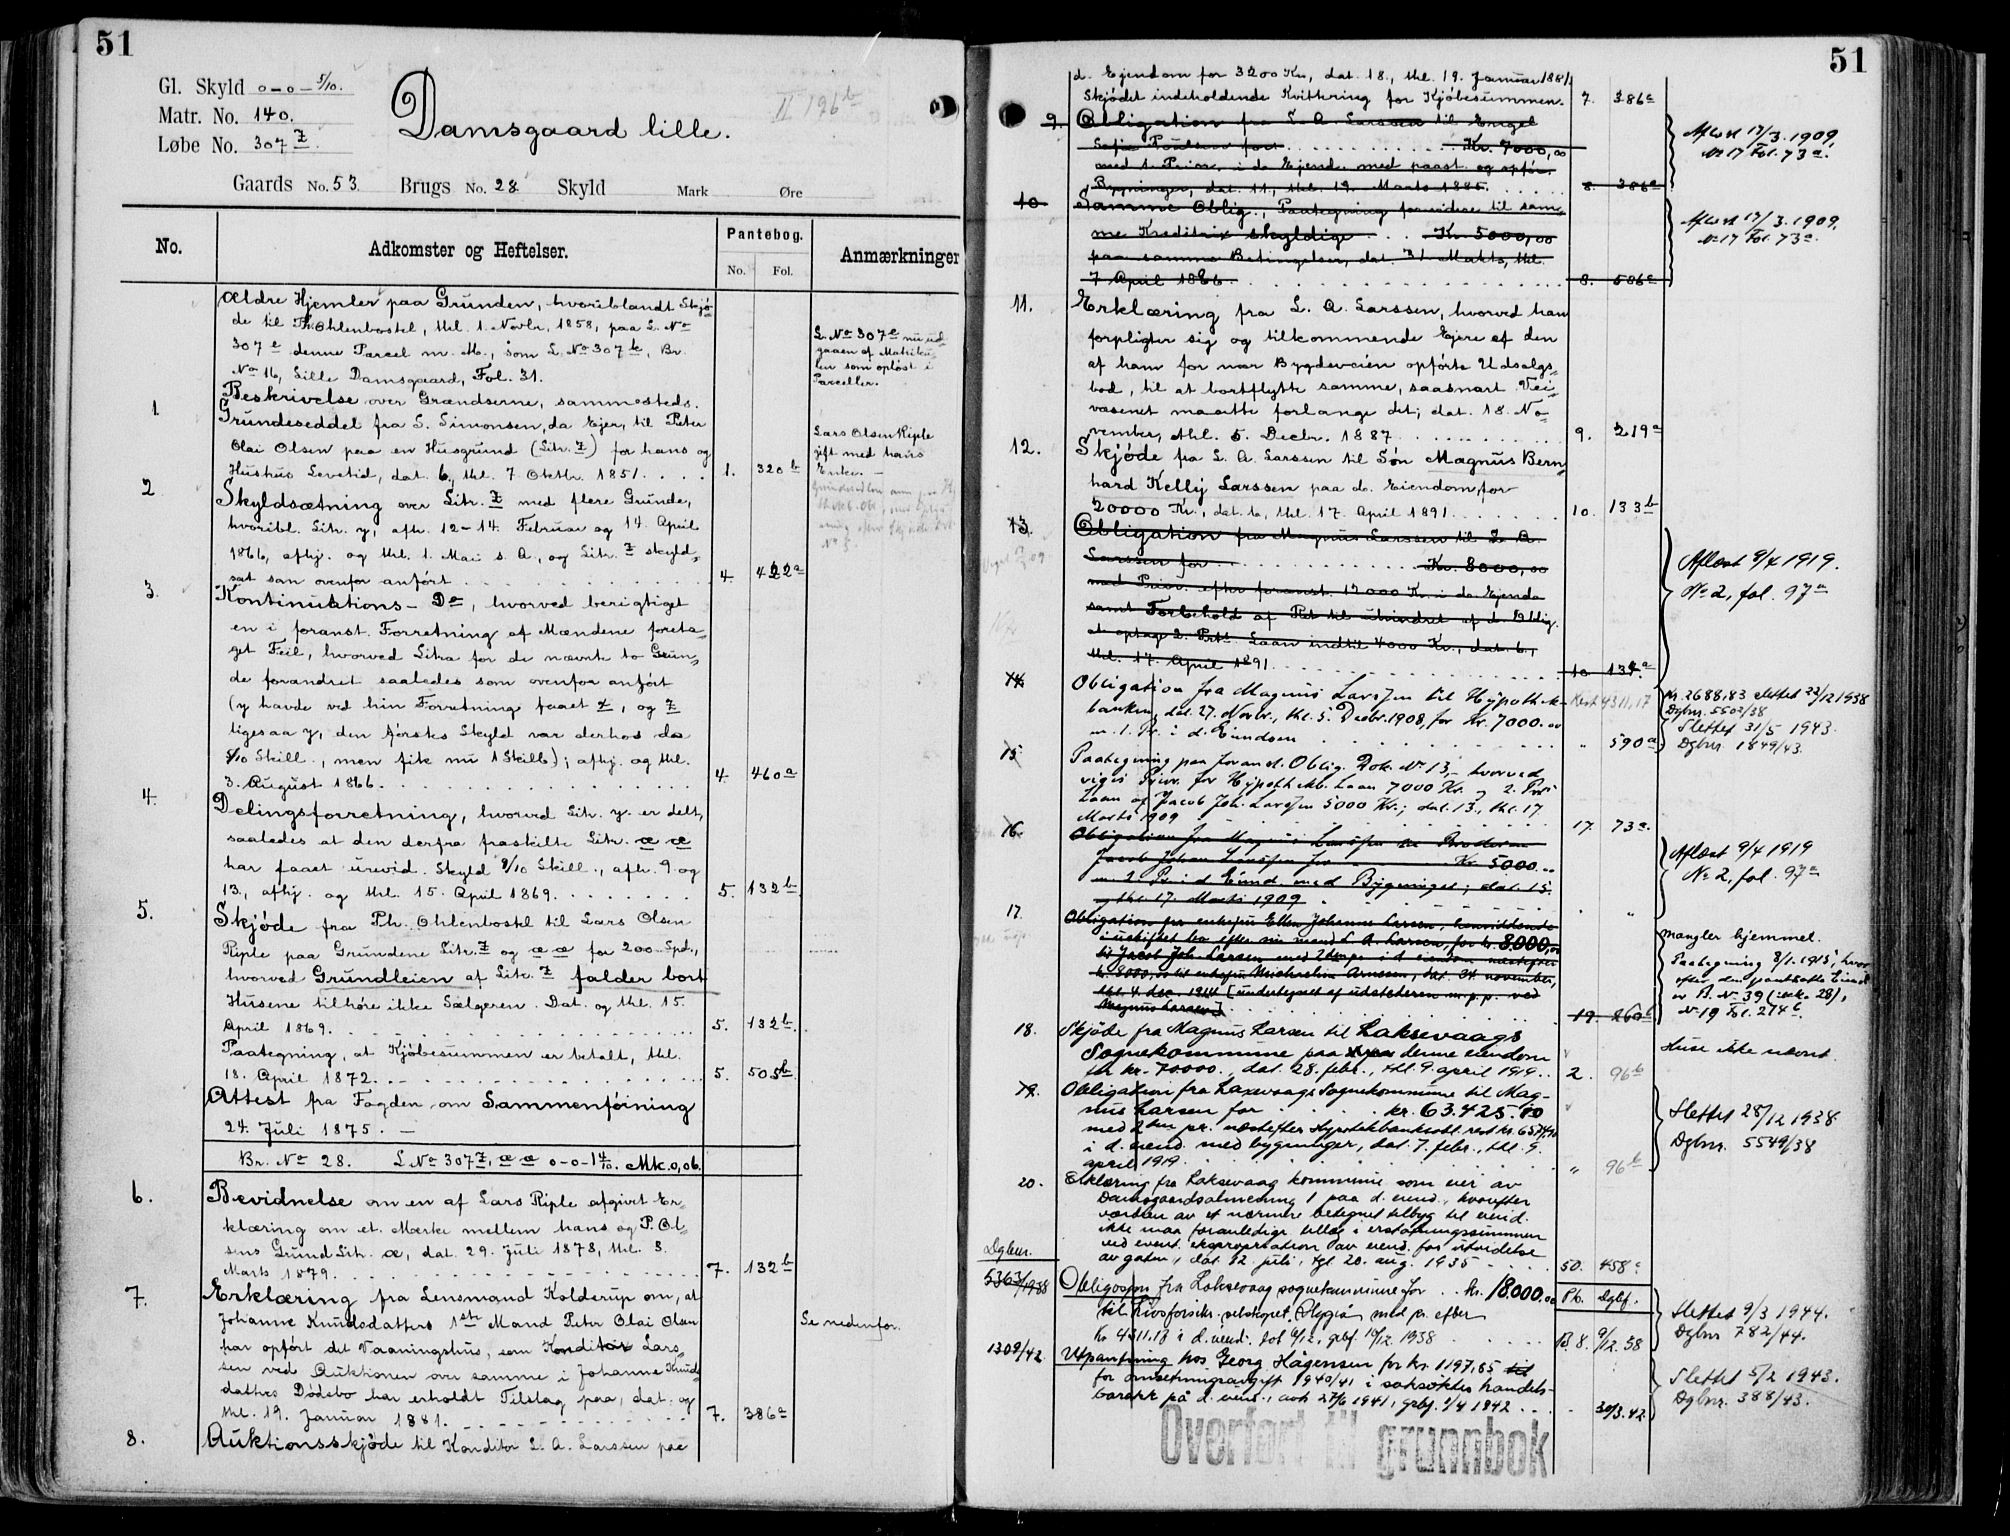 51
Gl. Skyld 0-0-5/10.
Matr. No. 140.
Løbe No. 307 Z
Damsgaard lille.
II 196 b
Gaards No. 53 Brugs No. 28 Skyld Mark Øre
No. Adkomster og Heftelser. Pantebog. Anmærkninger
No. Fol.
Ældre Hjemler paa Grunden, hvoriblandt Skjö-
de til Ph. Ohlenbostel, thl. 1. Novbr. 1858, paa L. No
307 e denne Parcel m. M., som L. No 307 k, Br.
No 16, Lille Damsgaard, Fol. 31.
L. No 307 e nu ud-
gaaen af Matriku-
len som oplöst i
Parceller.
Beskrivelse over Grændserne, sammesteds.
1. Grundeseddel fra S. Simonsen, da Ejer, til Peter
Olai Olsen paa en Husgrund (Litr. Z) for hans og
Hustrus Levetid, dat. 6, thl. 7 Oktbr. 1851. 1. 320 b
Lars Olsen Riple
gift med hans
Enke. —
2. Skyldsætning over Litr. Z med flere Grunde,
hvoribl. Litr. y, afh. 12-14. Februar og 14. April
1866, afhj. og thl. 1. Mai s. A., og Litr. Z skyld-
sat som ovenfor anfört 4. 422 a
3. Kontinuations-Do, hvorved berigtiget
en i foranst. Forretning af Mændene foreta-
get Feil, hvorved Litra for de nævnte to Grun-
de forandret saaledes som ovenfor anfört
(y havde ved hin Forretning faaet z, og z
ligesaa y, den förstes Skyld var derhos da
5/10 Skill., men fik nu 1 Skill); afhj. og thl.
3. August 1866. 4. 460 a
4. Delingsforretning, hvorved Litr. y. er delt,
saaledes at den derfra fraskilte Litr. æ æ
har faaet urevid. Skyld 9/10 Skill., afh. 9. og
13., afhj. og thl. 15. April 1869. 5. 132 b
5. Skjöde fra Ph. Ohlenbostel til Lars Olsen
Riple paa Grundene Litr. Z og æ æ for 200 Spd.,
hvorved Grundleien af Litr. Z falder bort
Husene tilhöre ikke Sælgeren. Dat. og thl. 15.
April 1869. 5. 132 b
Paategning, at Kjöbesummen er betalt, thl.
18. April 1872. 5. 505 b
Attest fra Fogden om Sammenföining
24. Juli 1875. —
Br. No 28. L No 307 Z, æ æ 0-0-1 4/10. Mk. 0,06.
6. Bevidnelse om en af Lars Riple afgivet Er-
klæring om et Mærke mellem hans og P. Ol-
sens Grund Litr. æ, dat. 29. Juli 1878, thl. 8.
Marts 1879. 7. 132 b
7. Erklæring fra Lensmand Kolderup om, at
Johanne Knudsdatters 1ste Mand Peter Olai Olsen
har opfört det Vaaningshus, som Konditor Lars-
sen ved Auktionen over samme i Johanne Knuds-
datters Dödsbo har erholdt Tilslag paa, dat. og
thl. 19. Januar 1881. 7. 386 a
Se nedenfor.
8. Auktionsskjöde til Konditor L. A. Larssen paa
51
d. Ejendom for 3200 Kr., dat. 18., thl. 19. Januar 1881,
Skjödet indeholdende Kvittering for Kjöbesummen. 7. 386 a
9. Obligation fra L. A. Larssen til Engel
Sofie Poulsen for Kr. 7000,00
med 1. Prior. i de Ejend. med paast. og opför.
Bygninger, dat. 11., thl. 19. Marts 1885. 8. 386 a
Aflæst 17/3. 1909,
No 17 Fol. 73 a.
10. Samme Oblig., Paategning forvidere til sam-
me Kreditrix skyldige Kr. 5000,00
paa samme Betingelser, dat. 31 Marts, thl.
7 April 1886. 8. 586 a
Aflæst 17/3. 1909,
No 17 Fol. 73 a.
11. Erklæring fra L. A. Larssen, hvorved han
forpligter sig og tilkommende Ejere af den
af ham for nær Bygdeveien opförte Udsalgs-
bod, til at bortflytte samme, saasnart Vei-
væsenet maatte forlange det; dat. 18. No-
vember, thl. 5. Decbr. 1887. 9. 219 a
12. Skjöde fra L. A. Larssen til Sön Magnus Bern-
hard Kelly Larssen paa d. Eiendom, for
20000 Kr., dat. 6., thl. 17. April 1891. 10. 133 b
13. Obligation fra Magnus Larssen til L. A.
Larssen for Kr. 8000,00
med Prior. efter foranst. 12000 Kr. i de Ejendo
samt Forbehold af Ret til uhindret af d. Oblig.
at optage 2. Prts. Laan indtil 4000 Kr., dat. 6.,
thl. 17. April 1891. 10. 134 a
Aflæst 9/4 1919.
No 2, fol. 97 a
14. Obligation fra Magnus Larssen til Hypothek-
banken, dat. 27. Novbr., thl. 5. Decbr. 1908, for Kr. 7000.00
m. 1. Pr. i d. Eiendom " 590 a
Rest 4311,17
Kr. 2688,83 slettet 22/12 1938
Dgbnr. 5502/38
Slettet 31/5 1943.
Dgbnr. 1849/43.
15. Paategning paa foranst. Oblig. Dok. No 13, hvorved
viges Prior. for Hypothekb. Laan 7000 Kr. og 2. Pr.
Laan af Jacob Joh. Larssen 5000 Kr.; dat. 13., thl. 17.
Marts 1909 17. 73 a.
16. Obligation fra Magnus Larssen til Broderen
Jacob Johan Larssen for Kr. 5000.00
m. 2. Pr. i d. Eiend. med Bygninger; dat. 15.
og thl. 17. Marts 1909 " "
Aflæst 9/4 1919
No 2, fol. 97 a
17. Obligation fra enkefru Ellen Johanne Larsen, hensiddende
i uskiftet bo efter sin mand L. A. Larsen, for kr. 8.000,00
til Jacob Joh. Larssen med 2den pr. i d. eiendom næstefter
kr. 8000,00 til enkefru Michaeline Arnesen, dat. 24. november,
thl. 4. dec. 1914 (undertegnet af udstederen m. p. p. ved
Magnus Larsen). 19. 260 b
Mangler hjemmel.
Paategning 8/1. 1915, hvor-
efter den pantsatte Eiend.
er B. No 39 (ikke 28),
No 19 Fol. 274 b.
18. Skjöde fra Magnus Larsen til Laksevaags
Sognekommune paa denne eiendom
for kr. 70000., dat. 28. febr., thl. 9. april 1919. 2. 96 b
Huse ikke nævnt.
19. Obligation fra Laksevaags Sognekommune til Mag-
nus Larsen for kr. 63.425.10
med 2den pr. næstefter Hypotekbanksobl. rest kr. 6574,90
i d. eiend. med bygninger, dat. 7. febr., thl. 9.
april 1919. " 96 b
Slettet 28/12 1938.
Dgbnr. 5549/38
20. Erklæring fra Laksevaag kommune som eier av
Damsgaardsalmenning 1 paa d. eiend., hvorefter
værdien av et nærmere betegnet tilbyg til eiend.
ikke maa foranledige tillæg i erstatningssummen
ved event. ekspropriation av eiend. for utvidelse
av gaten, dat. 12. juli, tgl. 20. aug. 1935 50. 458 a
Dgbnr. Pb. Dgbf.
5363/1938 Obligasjon fra Laksevaag sognekommune for kr. 18.000.00
til Livsforsikr. selskapet Idun med pr. efter
Kr. 4311.17 i d. eiend. dat 6/12, gebf. 10/12 1938 B. 8. 9/12.38
Slettet 9/3 1944.
Dgbnr 782/44.
1309/42. Utpantning hos Georg Hågenssen for kr. 1197,85
for omsetningsavgift 1940/41 i saksöktes handels-
barakk på d. eiend., avh. 27/6 1941, gebf. 1/4 1942 " 30/3.42
Slettet 5/2 1943.
Dgbnr. 388/43.
Overført til grunnbok